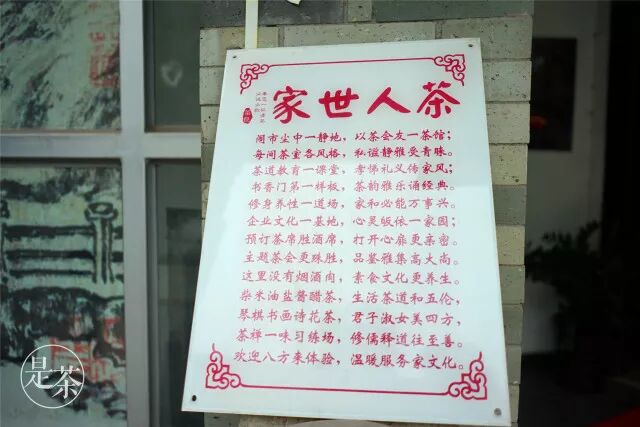 家世人茶
闹市尘中一静地，以茶会友一茶馆；
每间茶室各风格，私谧静雅受青睐。
茶道教育一课堂，孝悌礼义传家风；
书香门第一样板，茶韵雅乐诵经典。
修身养性一道场，家和必能万事兴。
企业文化一基地，心灵皈依一家园；
预订茶席胜酒席，打开心扉更亲密。
主题茶会更殊胜，品鉴雅集高大尚。
这里没有烟酒肉，素食文化更养生。
柴米油盐酱醋茶，生活茶道和五伦，
琴棋书画诗花茶，君子淑女美四方，
茶禅一味习练场，修儒释道往至善。
欢迎八方来体验，温暖服务家文化。
是茶